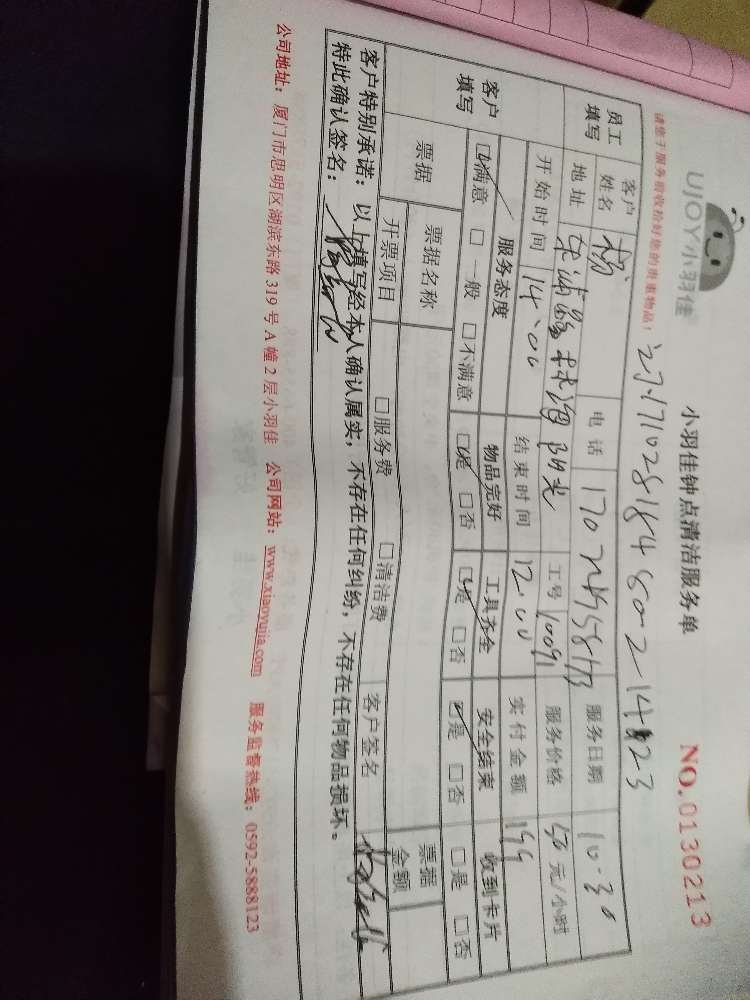 UJOY小羽佳
小羽佳钟点清洁服务单
NO.0130213
请您于服务前收拾好您的贵重物品!
员工填写 客户姓名 杨 电话 服务日期 10-30
地址 阳光 工号 10091 服务价格 50元/小时
开始时间 14:00 结束时间 12:00 实付金额 199
客户填写 服务态度 物品完好 工具齐全 安全结束 收到卡片
☑满意 □一般 □不满意 ☑是 □否 ☑是 □否 ☑是 □否 □是 □否
票据 票据名称 □服务费 □清洁费 票据金额
开票项目 客户签名
客户特别承诺:以上填写经本人确认属实,不存在任何纠纷,不存在任何物品损坏。
特此确认签名:
公司地址:厦门市思明区湖滨东路319号A幢2层小羽佳 公司网站:www.xiaoyujia.com 服务监督热线:0592-5888123